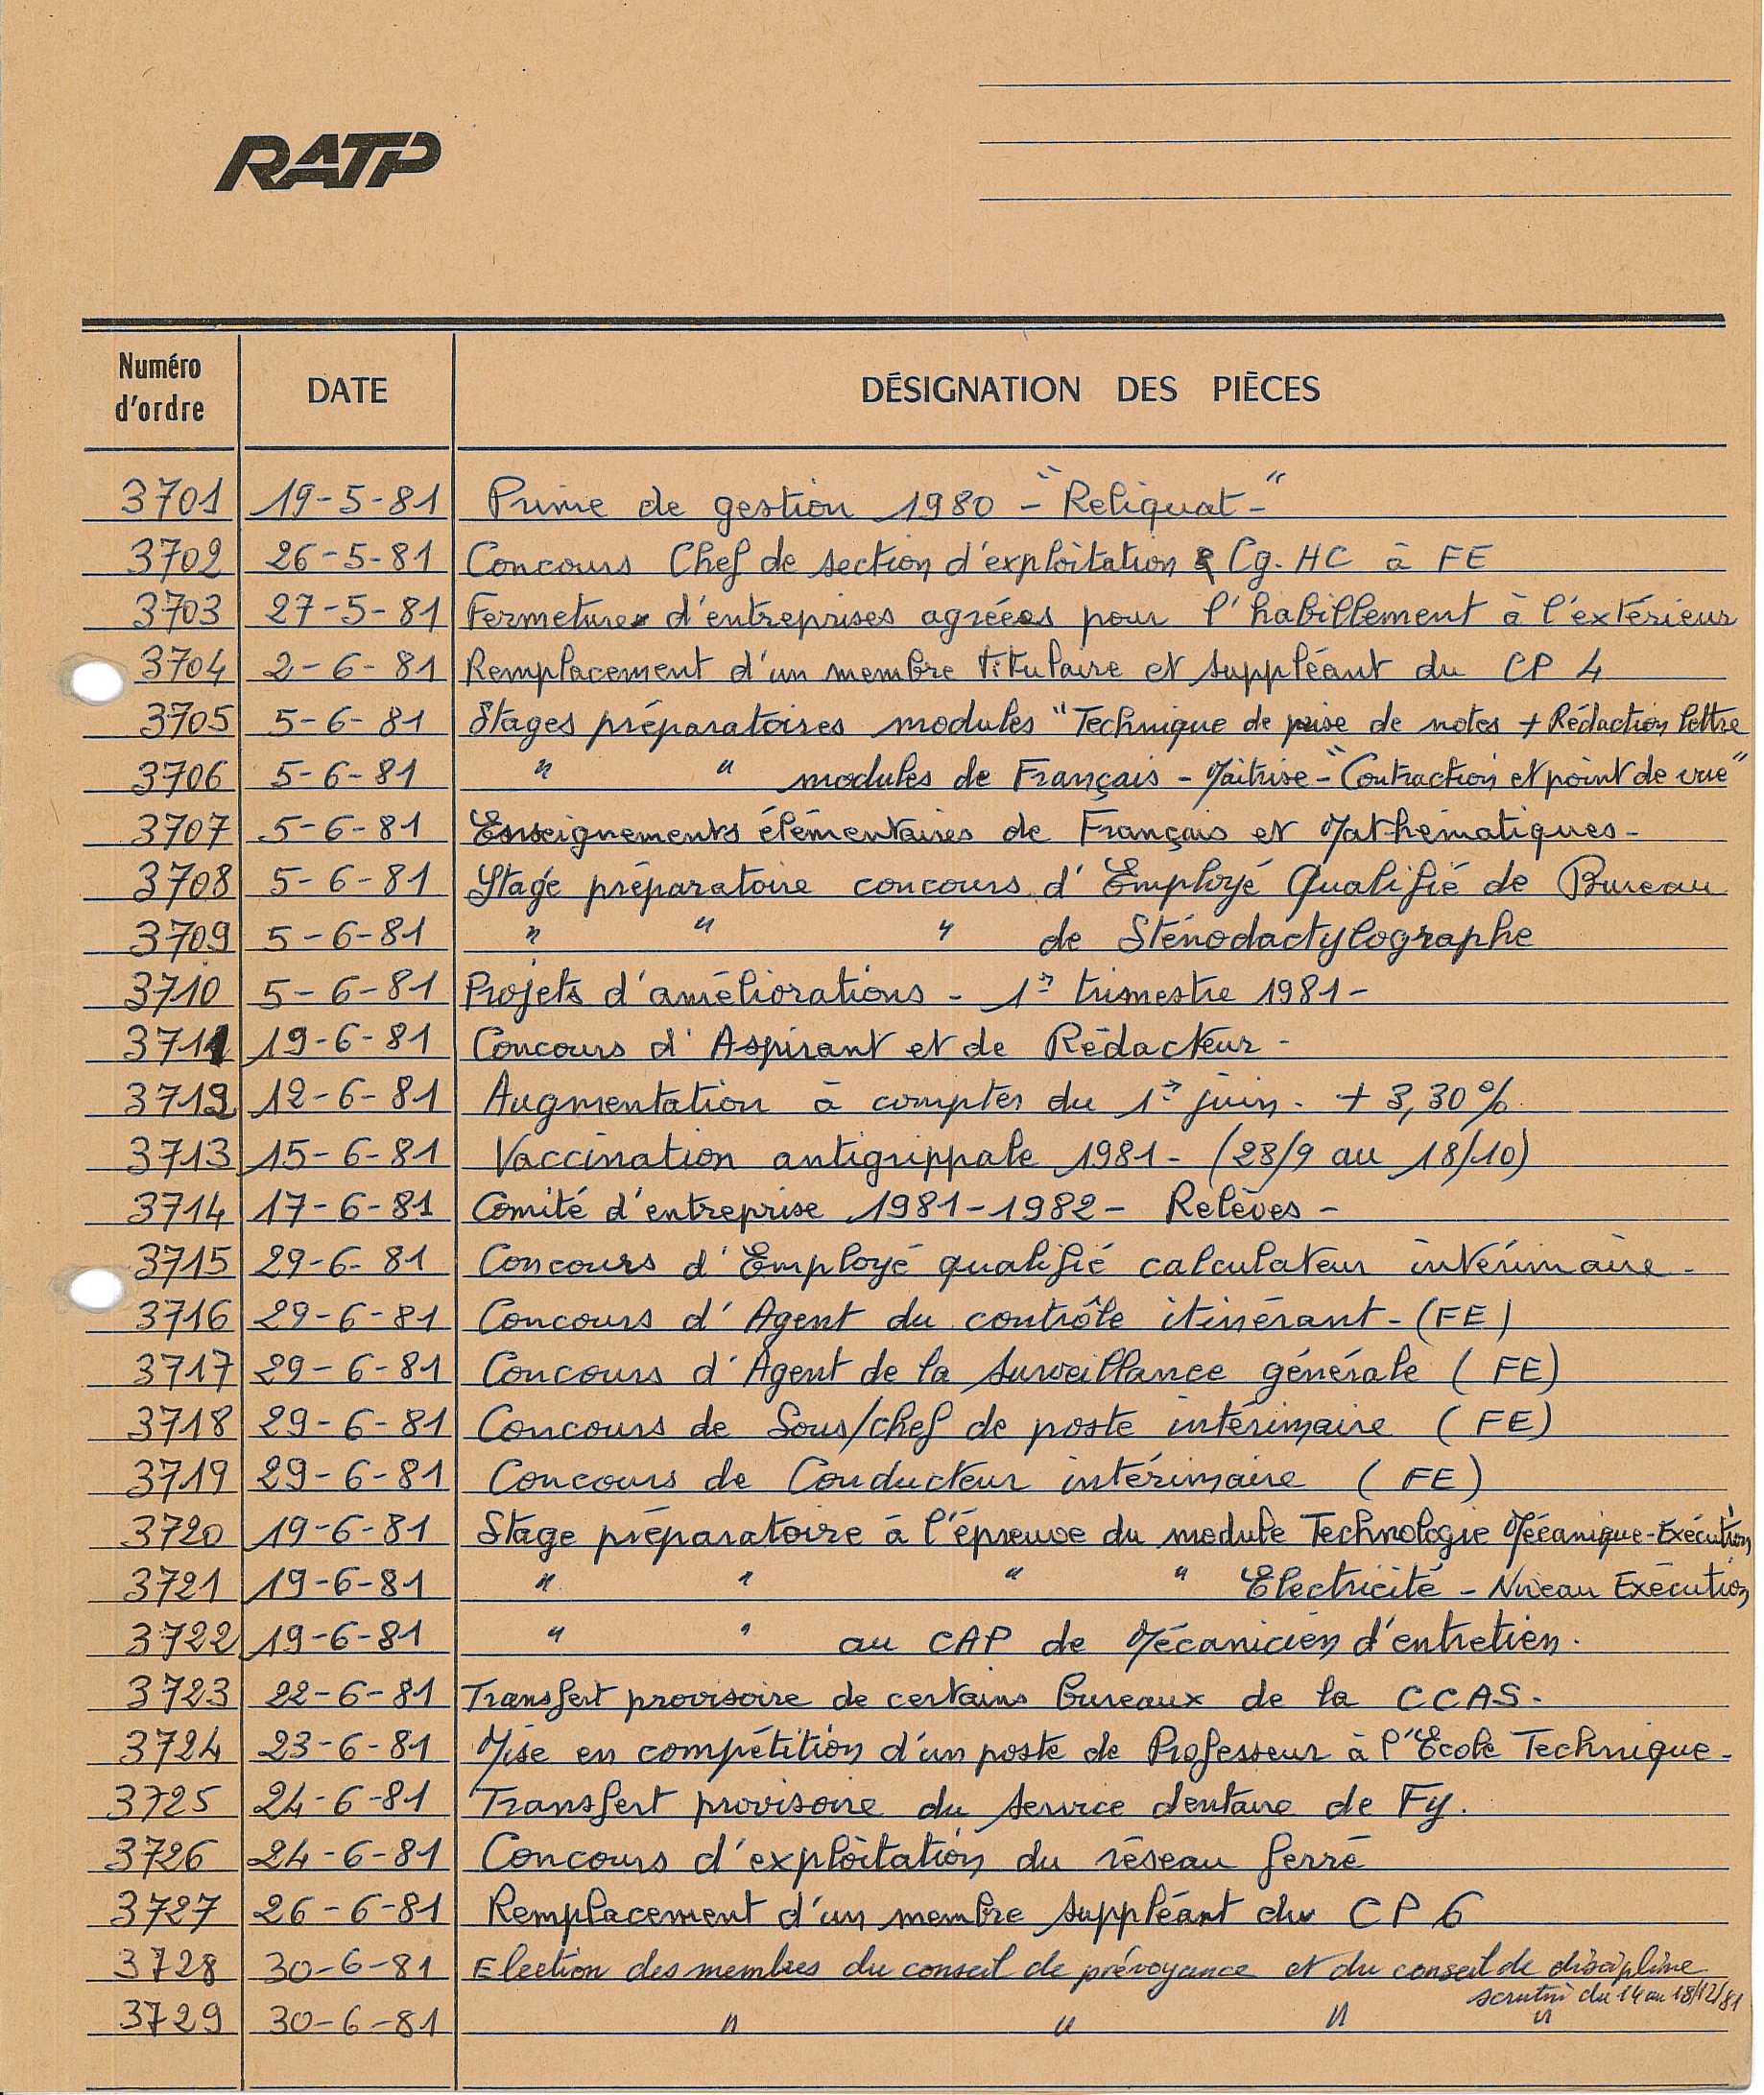 RATP
Numéro d'ordre DATE DÉSIGNATION DES PIÈCES
3701 19-5-81 Prime de gestion 1980 - "Reliquat-"
3702 26-5-81 Concours Chef de section d'exploitation & Cg. HC à FE
3703 27-5-81 Fermeture d'entreprises agréées pour l'habillement à l'extérieur
3704 2-6-81 Remplacement d'un membre titulaire et suppléant du CP 4
3705 5-6-81 Stages préparatoires modules "Technique de prise de notes + Rédaction lettre
3706 5-6-81 " " modules de Français - Maîtrise - "Contraction et point de vue"
3707 5-6-81 Enseignements élémentaires de Français et Mathématiques -
3708 5-6-81 Stage préparatoire concours d'Employé Qualifié de Bureau
3709 5-6-81 " " " de Sténodactylographe
3710 5-6-81 Projets d'améliorations - 1er trimestre 1981 -
3711 19-6-81 Concours d'Aspirant et de Rédacteur -
3712 12-6-81 Augmentation à compter du 1er juin - + 3,30 %
3713 15-6-81 Vaccination antigrippale 1981 - (28/9 au 18/10)
3714 17-6-81 Comité d'entreprise 1981-1982 - Relèves -
3715 29-6-81 Concours d'Employé qualifié calculateur intérimaire -
3716 29-6-81 Concours d'Agent du contrôle itinérant - (FE)
3717 29-6-81 Concours d'Agent de la surveillance générale (FE)
3718 29-6-81 Concours de Sous/chef de poste intérimaire (FE)
3719 29-6-81 Concours de Conducteur intérimaire (FE)
3720 19-6-81 Stage préparatoire à l'épreuve du module Technologie Mécanique-Exécution
3721 19-6-81 " " " " Electricité - Niveau Exécution
3722 19-6-81 " " au CAP de Mécanicien d'entretien.
3723 22-6-81 Transfert provisoire de certains bureaux de la CCAS.
3724 23-6-81 Mise en compétition d'un poste de Professeur à l'Ecole Technique -
3725 24-6-81 Transfert provisoire du service dentaire de Fy.
3726 24-6-81 Concours d'exploitation du réseau ferré
3727 26-6-81 Remplacement d'un membre suppléant du CP 6
3728 30-6-81 Election des membres du conseil de prévoyance et du conseil de discipline
scrutin du 14 au 18/12/81
3729 30-6-81 " " " "